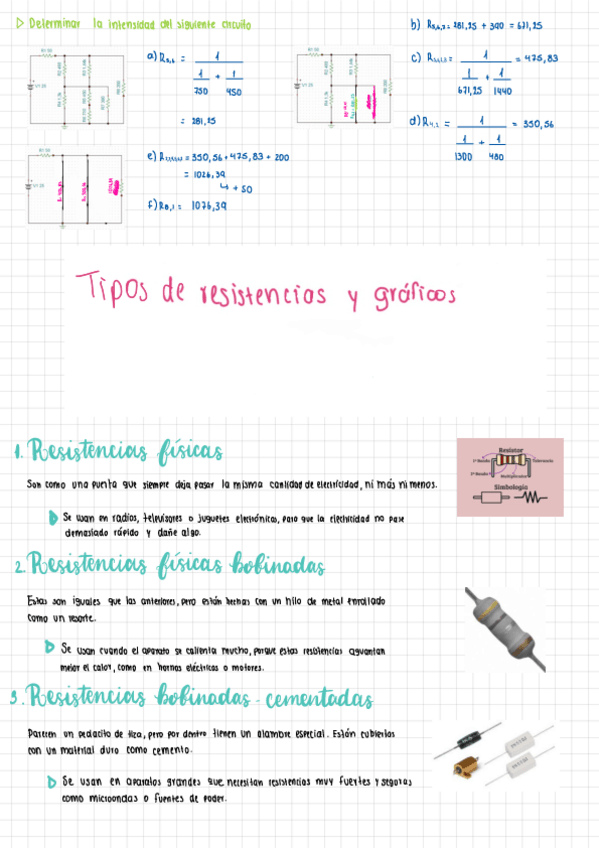 ▷ Determinar la intensidad del siguiente circuito
a) R5,6 = 1
1/750 + 1/450
= 281,25
b) R5,6,7 = 281,25 + 390 = 671,25
c) = 1 = 475,83
1/671,25 + 1/1440
d) R4,2 = 1 = 350,56
1/1300 + 1/480
e) = 350,56 + 475,83 + 200
= 1026,39
↳ + 50
f) R8,1 = 1076,39
Tipos de resistencias y gráficos
1. Resistencias físicas
Son como una puerta que siempre deja pasar la misma cantidad de electricidad, ni más ni menos.
Se usan en radios, televisores o juguetes electrónicos, para que la electricidad no pase
demasiado rápido y dañe algo.
Resistor
1ª Banda
Tolerancia
2ª Banda
Multiplicador
Simbología
2. Resistencias físicas bobinadas
Estas son iguales que las anteriores, pero están hechas con un hilo de metal enrollado
como un resorte.
Se usan cuando el aparato se calienta mucho, porque estas resistencias aguantan
mejor el calor, como en hornos eléctricos o motores.
3. Resistencias bobinadas - cementadas
Parecen un pedacito de tiza, pero por dentro tienen un alambre especial. Están cubiertas
con un material duro como cemento.
Se usan en aparatos grandes que necesitan resistencias muy fuertes y seguras
como microondas o fuentes de poder.